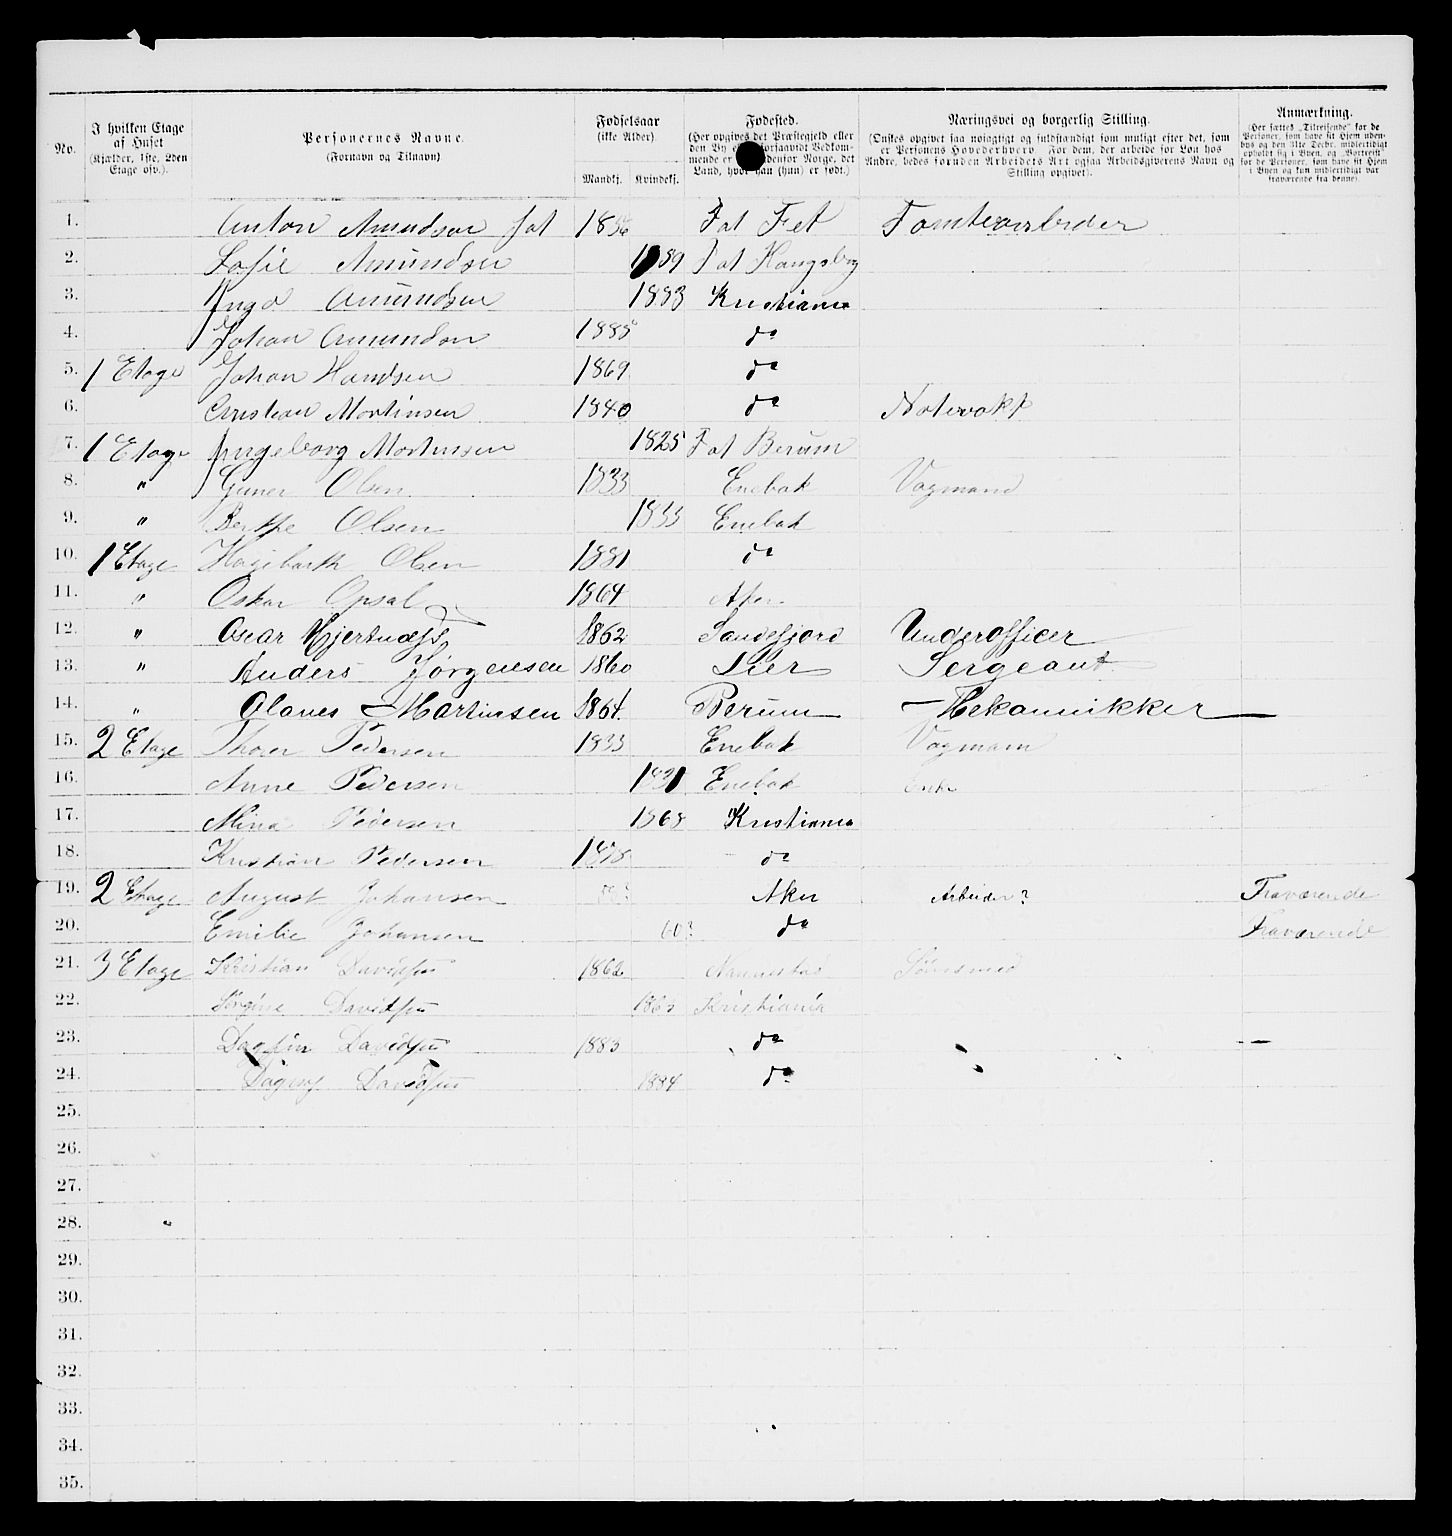 No.
I hvilken Etage af Huset (Kjælder, 1ste, 2den Etage osv.).
Personernes Navne. (Fornavn og Tilnavn)
Fødselsaar (ikke Alder). Mandkj. Kvindekj.
Fødested.
(Her opgives det Præstegjeld eller
den By forsaavidt Vedkom-
mende er denfor Norge, det
Land, hvor han (hun) er født.)
Næringsvei og borgerlig Stilling.
(Ønskes opgivet saa nøiagtigt og fuldstændigt som muligt efter det, som
er Personens Hovederhverv. For dem, der arbeide for Løn hos
Andre, bedes foruden Arbeidets Art ogsaa Arbeidsgiverens Navn og
Stilling opgivet).
Anmærkning.
(Her sættes „Tilreisende“ for de
Personer, som have sit Hjem uden-
bys og den 31te Decbr. midlertidigt
opholdt sig i Byen, og „Bortreist“
for de Personer, som have sit Hjem
i Byen og kun midlertidigt var
fraværende fra denne)
1. Anton Amundsen fat 1856 Fat Fet Tomtearbeder
2. Sofie Amundsen 1859 Fat Kongsberg
3. Inga Amundsen 1883 Kristiania
4. Johan Amundsen 1885 do
5. 1 Etage Johan Hansen 1869 do
6. Christian Martinsen 1840 do Natevakt
7. 1 Etage Ingeborg Martinsen 1825 Fat Berum
8. " Guner Olsen 1833 Enebak Vogmand
9. " Berthe Olsen 1833 Enebak
10. 1 Etage Hagibarth Olsen 1881 do
11. " Oskar Opsal 1864 Aker
12. " Oscar Hjertnæss 1862 Sandefjord Underofficer
13. " Anders Jørgensen 1860 Lier Sergeant
14. " Olaves Martinsen 1864. Berum Mekanikker
15. 2 Etage Thorer Pedersen 1833 Enebak Vogmam
16. Anne Pedersen 1831 Enebak
17. Mina Pedersen 1868 Kristiania
18. Kristian Pedersen 1878 do
19. 2 Etage August Johansen Aker Arbeider? Fraværende
20. Emilie Johansen 60? do Fraværende
21. 3 Etage Kristian Davidsen 1862
22. Jørgine Davidsen 1863 Kristiania
23. Dagfin Davidsen 1883 do
24. Dagny Davidsen 1884 do
25.
26.
27.
28.
29.
30.
31.
32.
33.
34.
35.